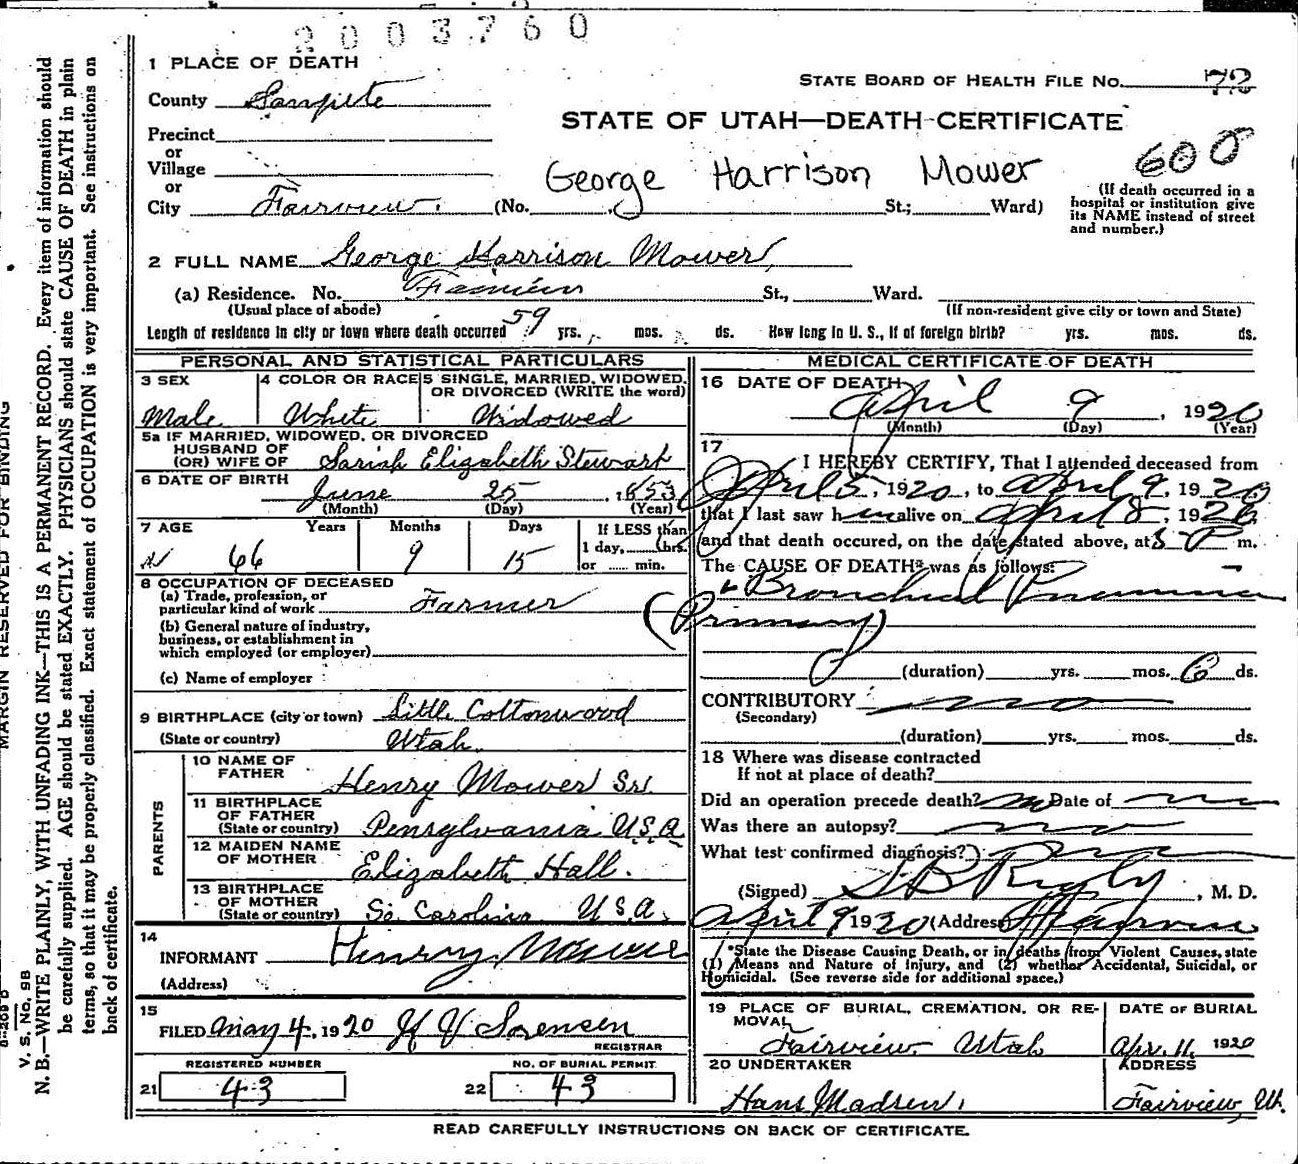 2003760
1 PLACE OF DEATH
STATE BOARD OF HEALTH FILE NO. 72
County Sanpete
STATE OF UTAH—DEATH CERTIFICATE
Precinct
or
Village
or
City Fairview. (No. St.; Ward)
George Harrison Mower
600
(If death occurred in a
hospital or institution give
its NAME instead of street
and number.)
2 FULL NAME George Harrison Mower
(a) Residence. No. Fairview St., Ward.
(Usual place of abode)
(If non-resident give city or town and State)
Length of residence in city or town where death occurred 59 yrs. mos. ds. How long in U. S., if of foreign birth? yrs. mos. ds.
PERSONAL AND STATISTICAL PARTICULARS
3 SEX
Male
4 COLOR OR RACE
White
5 SINGLE, MARRIED, WIDOWED,
OR DIVORCED (WRITE the word)
Widowed
5a IF MARRIED, WIDOWED, OR DIVORCED
HUSBAND OF
(OR) WIFE OF Sariah Elizabeth Stewart
6 DATE OF BIRTH
June 25, 1853
(Month) (Day) (Year)
7 AGE Years Months Days
66 9 15
If LESS than
1 day, hrs.
or min.
8 OCCUPATION OF DECEASED
(a) Trade, profession, or
particular kind of work Farmer
(b) General nature of industry,
business, or establishment in
which employed (or employer)
(c) Name of employer
9 BIRTHPLACE (city or town) Little Cottonwood
(State or country) Utah.
PARENTS
10 NAME OF
FATHER Henry Mower Sr.
11 BIRTHPLACE
OF FATHER
(State or country) Pensylvania U.S.A
12 MAIDEN NAME
OF MOTHER Elizabeth Hall.
13 BIRTHPLACE
OF MOTHER
(State or country) So. Carolina U.S.A.
14
INFORMANT Henry Mower
(Address)
15
FILED May 4, 1920 Sorensen
REGISTRAR
REGISTERED NUMBER
21 43
NO. OF BURIAL PERMIT
22 43
MEDICAL CERTIFICATE OF DEATH
16 DATE OF DEATH
April 9, 1920
(Month) (Day) (Year)
17
I HEREBY CERTIFY, That I attended deceased from
April 5, 1920, to April 9, 1920
that I last saw him alive on April 8, 1920
and that death occured, on the date stated above, at 5 P m.
The CAUSE OF DEATH* was as follows:
Bronchial Pneumonia
(Primary)
(duration) yrs. mos. 6 ds.
CONTRIBUTORY no
(Secondary)
(duration) yrs. mos. ds.
18 Where was disease contracted
If not at place of death?
Did an operation precede death? no Date of
Was there an autopsy? no
What test confirmed diagnosis?
(Signed) S B Rigby, M. D.
April 9 1920 (Address) Fairview
*State the Disease Causing Death, or in deaths from Violent Causes, state
(1) Means and Nature of Injury, and (2) whether Accidental, Suicidal, or
Homicidal. (See reverse side for additional space.)
19 PLACE OF BURIAL, CREMATION, OR RE-
MOVAL
Fairview Utah
DATE OF BURIAL
Apr. 11, 1920
20 UNDERTAKER
Hans Madsen.
ADDRESS
Fairview, Ut.
READ CAREFULLY INSTRUCTIONS ON BACK OF CERTIFICATE.
MARGIN RESERVED FOR BINDING
V. S. No. 9B
N. B.—WRITE PLAINLY, WITH UNFADING INK—THIS IS A PERMANENT RECORD. Every item of information should
be carefully supplied. AGE should be stated EXACTLY. PHYSICIANS should state CAUSE OF DEATH in plain
terms, so that it may be properly classified. Exact statement of OCCUPATION is very important. See instructions on
back of certificate.